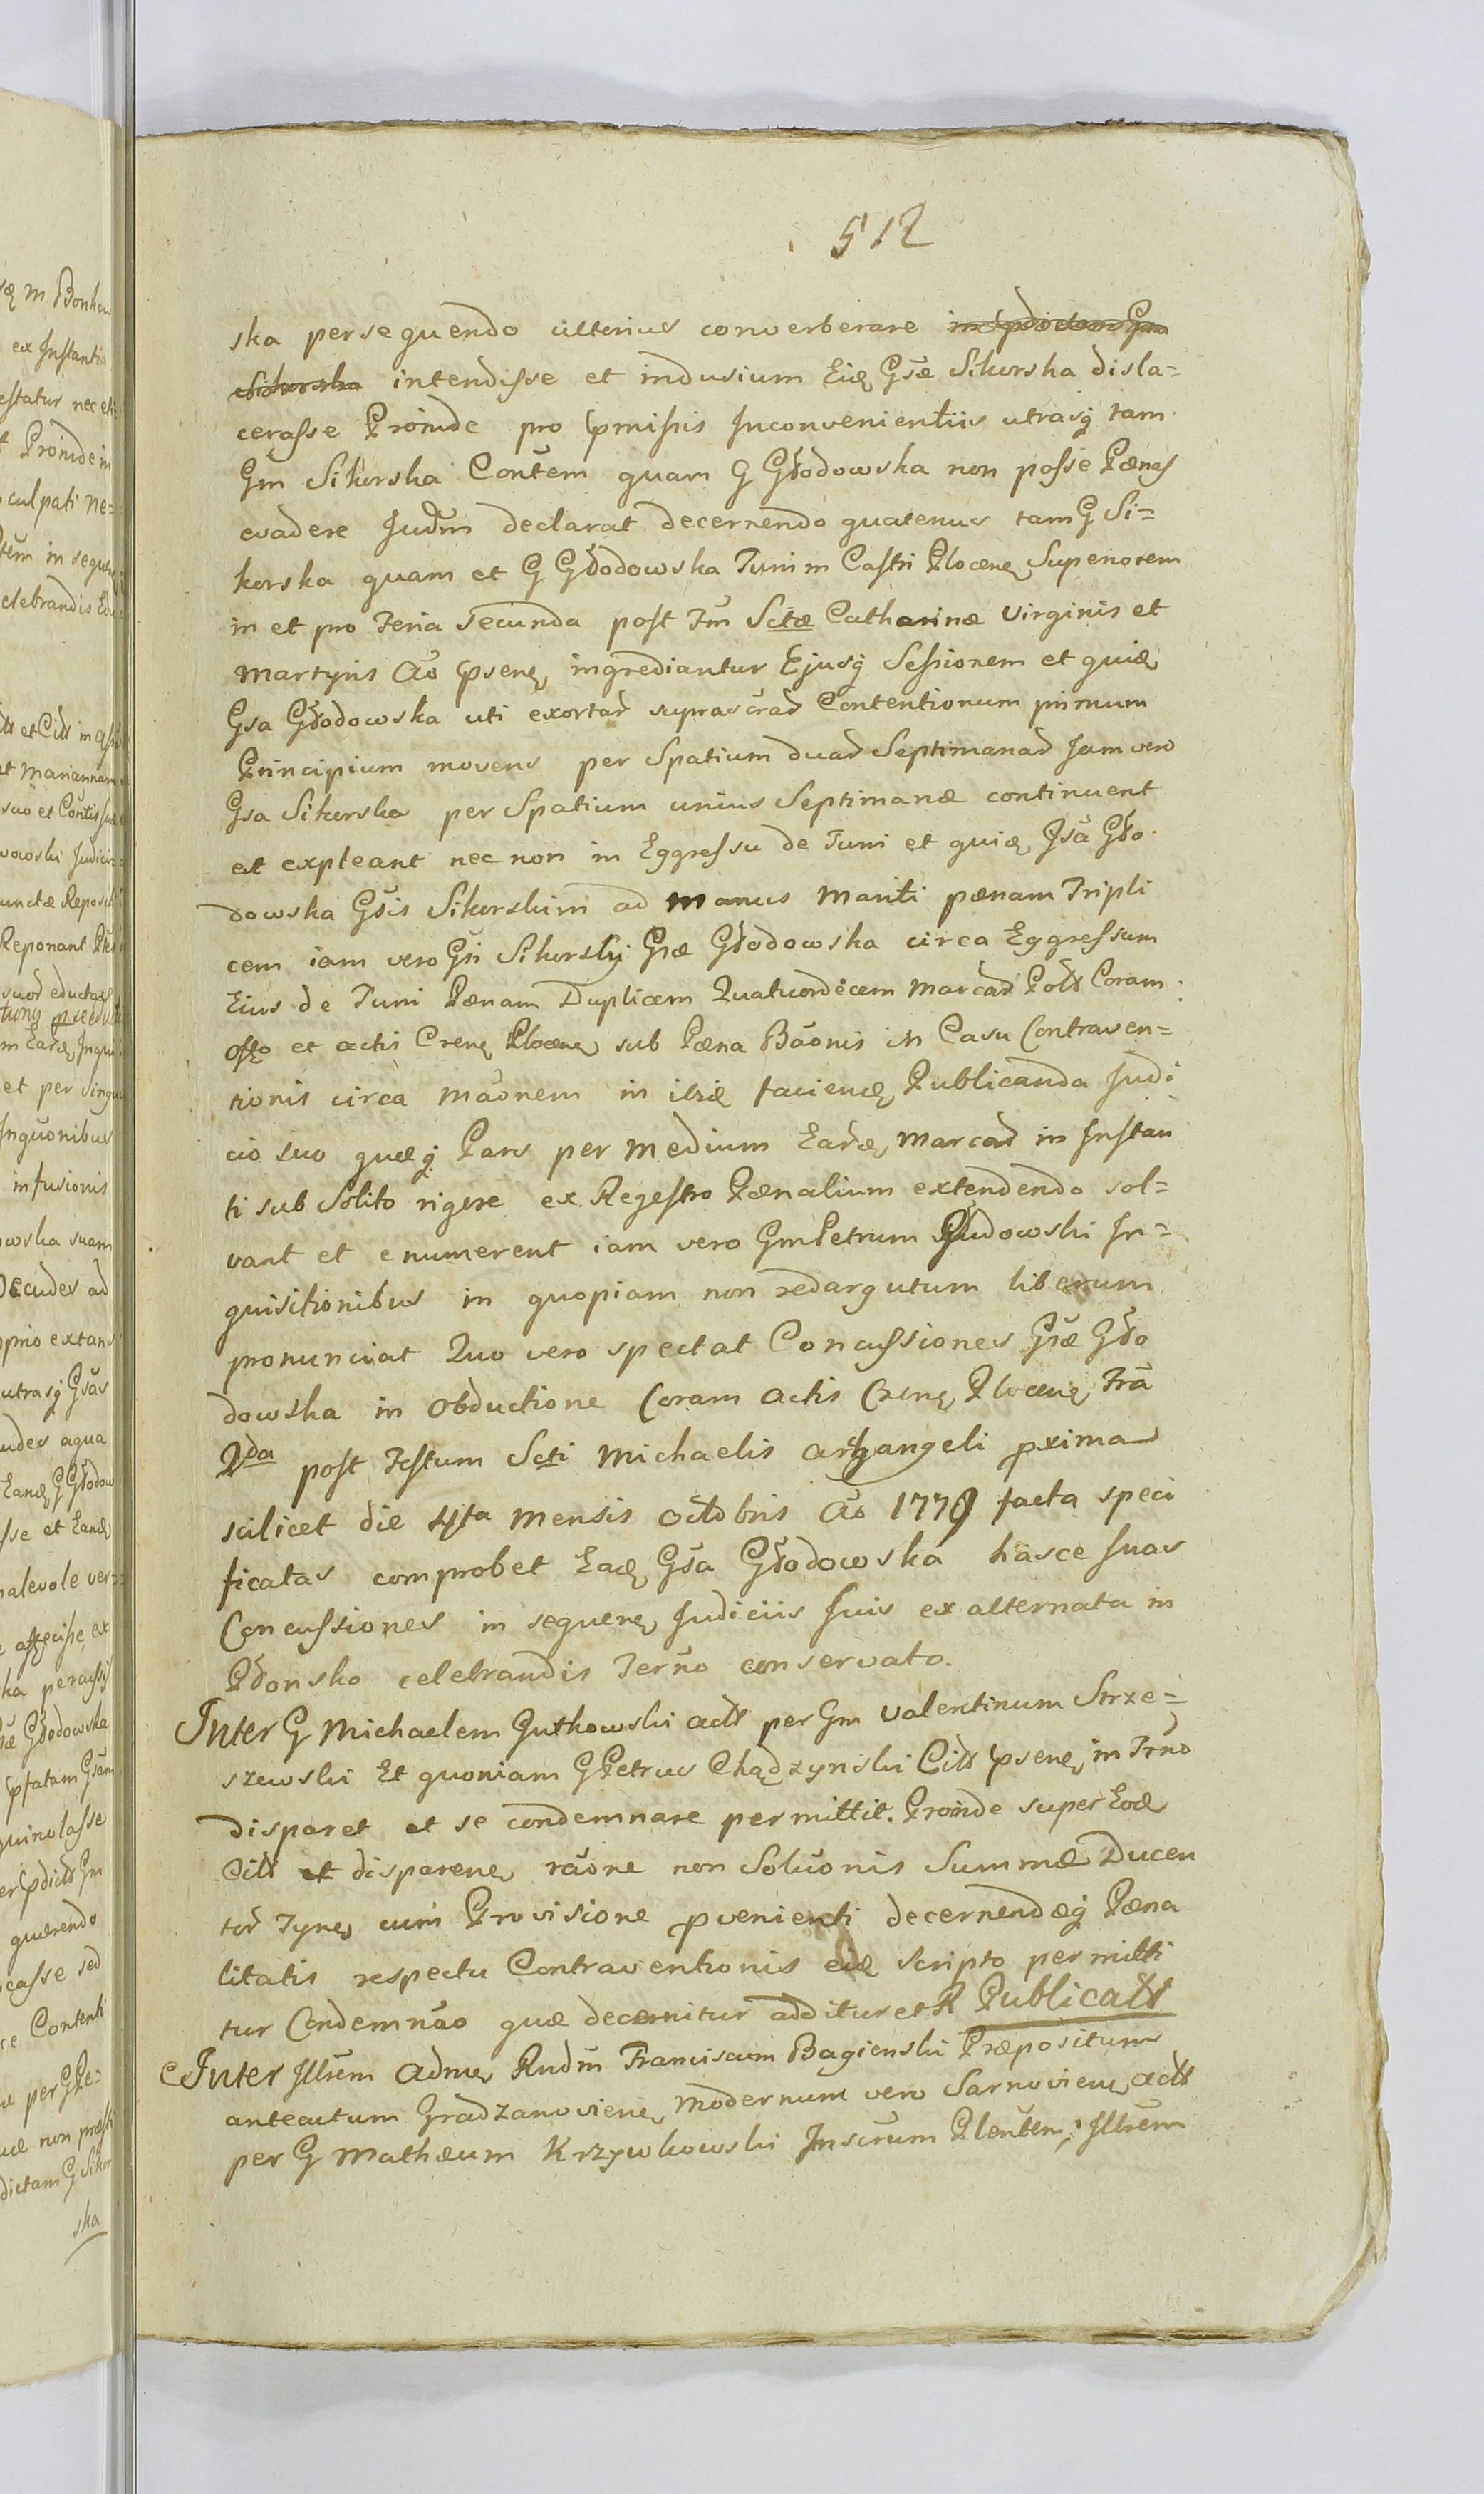 512
ska persequendo ulterius converberare
Sikorska intendisse et indusium Eidē Gsæ Sikorska disla=
cerasse Proinde pro ꝑmissis Inconvenientiis utrasq̨ tam
Gm Sikorska Contem quam G Głodowska non posse Pænas
evadere Judm declarat decernendo quatenus tam G Si=
korska quam et G Głodowska Turim Castri Plocenę Superiorem
in et pro Feria Secunda post Fm Sctæ Catharinæ Virginis et
Martyris Ao psenę ingrediantur Ejusq̨ Sessionem et quidē
Gsa Głodowska uti exortar suprascrar Contentionum primum
Principium movens per Spatium duar Septimanar Jam vero
Gsa Sikorska per Spatium unius Septimanæ continuent
et expleant nec non in Eggressu de Turri et quidē Gsa Gło
dowska Gsis Sikorskim ad manus mariti pænam Tripli
cem iam vero Gsi Sikorsky Gsæ Głodowska circa Eggressum
Eius de Turri Pænam Duplicem Quatuordecem Marcar Polł Coram
Offo et actis Crenę Plocenę sub Pæna Baonis in Casu Contraven=
tionis circa maonem in itsdē faciendę Publicanda Judi
cio suo quæq̨ Pars per medium Eardę Marcar in Instan
ti sub solito rigore ex Regestro Pænalium extendendo sol=
vant et enumerent iam vero Gm Petrum Głudowski In=
quisitionibus in quopiam non redargutum liberum
pronunciat Quo vero spectat Concussiones Gsæ Gło
dowska in Obductione Coram actis Crenę Plocenę Fra
2da post Festum Scti Michaelis Archangeli proxima
scilicet die 4ta Mensis Octobris Ao 1779 facta speci
ficatas comprobet Eadę Gsa Głodowska hasce suas
Concussiones in sequenę Judiciis suis ex alternata in
Płonsko celebrandis Terno conservato.
Inter G Michaelem Gutkowski actł per Gm Valentinum Strze=
szewski Et quoniam G Petrus Chądzynski Citł psenę in Trno
disparet et se condemnare permittit. Proinde super Eodē
Citł et disparenę raone non Soluonis Summæ Ducen
tor Tynę cum Provisione pvenienti decernendæq̨ Pæna
litatis respectu Contraventionis eidē scripto permitti
tur Condemnao quæ decernitur additur et R Publicatł
Inter Illrem Admę Rndm Franciscum Bagienski Præpositum
anteactum Gradzanovienę modernum vero Sarnovienę actł
per G Mathæum Krzywkowski Inscrum Plentem; Illrem